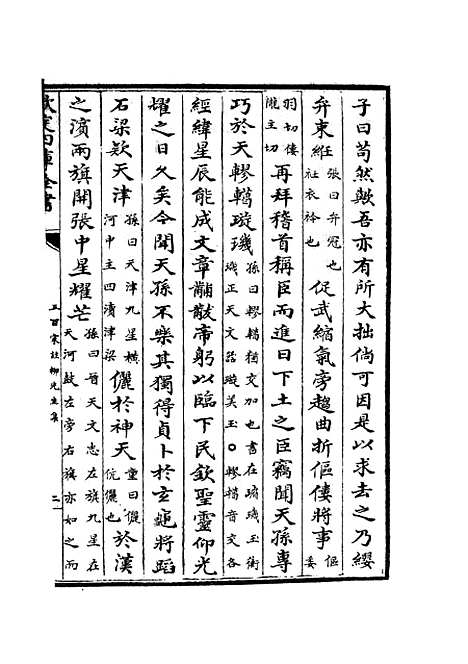 子曰苟然歟吾亦有所大拙倘可因是以求去之乃纓
弁束袵張曰弁冠也社衣衿也促武縮氣旁趨曲折傴僂將事傴委
羽切僂隴主切再拜稽首稱臣而進曰下土之臣竊聞天孫專
巧於天轇轕璇璣孫曰轇轕猶交加也書在璿璣玉衡璣正天文器璇美玉○轇轕音交各
經緯星辰能成文章黼黻帝躬以臨下民欽聖靈仰光
耀之日久矣今聞天孫不樂其獨得貞卜於玄龜將蹈
石梁欵天津孫曰天津九星橫河中主四瀆津梁儷於神夫童曰儷伉儷也於漢
之濱兩旗開張中星耀芒孫曰晉天文志左旗九星在天河鼓左旁右旗亦如之而
欽定四庫全書
五百家註柳先生集
二